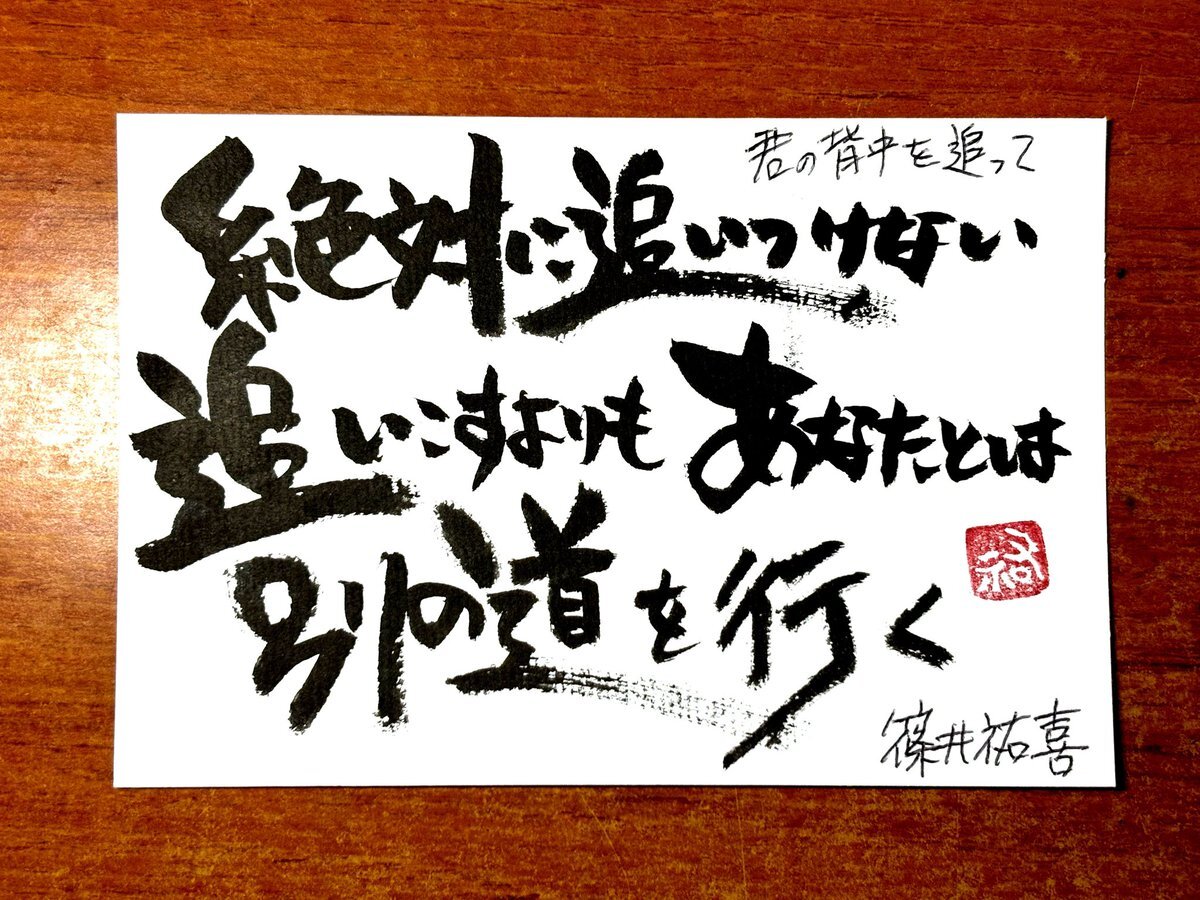 君の背中を追って
絶対に追いつけない
追いこすよりもあなたとは
別の道を行く
祐
篠井祐喜